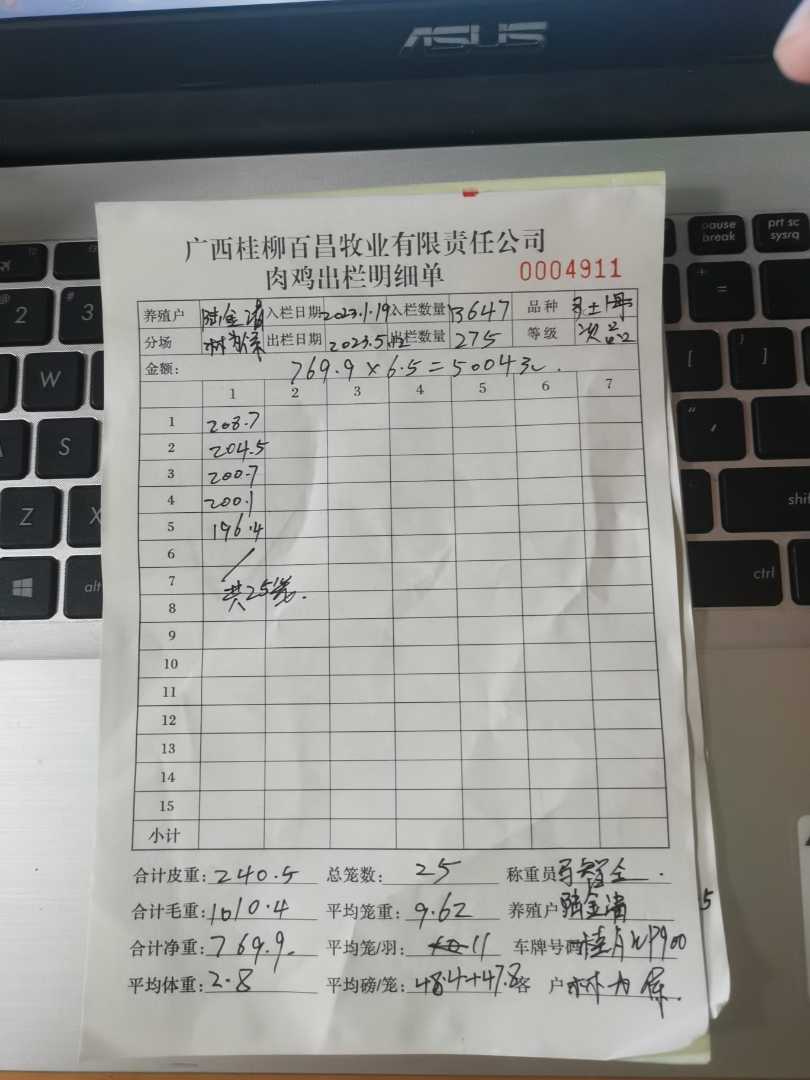 ASUS
pause break
prt sc sysrq
广西桂柳百昌牧业有限责任公司
肉鸡出栏明细单 0004911
养殖户 陆金清 入栏日期 2023.1.19 入栏数量 13647 品种
分场 出栏日期 2023.5.12 出栏数量 275 等级 次品
金额: 769.9×6.5=5004元.
1 2 3 4 5 6 7
1 208.7
2 204.5
3 200.7
4 200.1
5 196.4
6
7
8 共25笼.
9
10
11
12
13
14
15
小计
合计皮重: 240.5 总笼数: 25 称重员
合计毛重: 1010.4 平均笼重: 9.62 养殖户 陆金清
合计净重: 769.9. 平均笼/羽: 11 车牌号码
平均体重: 2.8 平均磅/笼: 48.4+47.8 客户
2
3
W
S
Z
X
alt
+
=
[
]
shi
ctrl